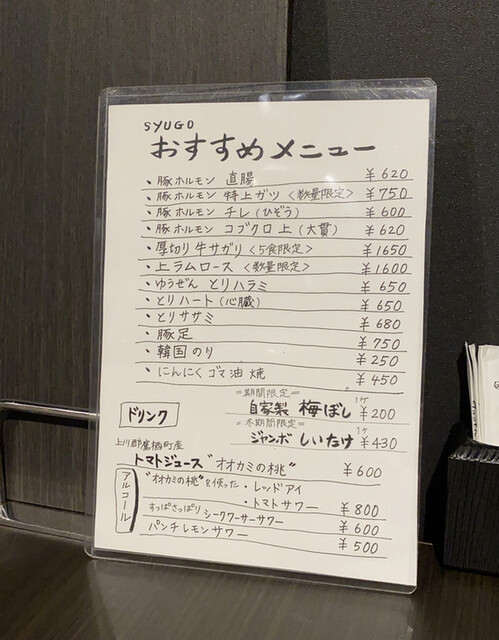 SYUGO
おすすめメニュー
・豚ホルモン 直腸 ￥620
・豚ホルモン 特上ガツ＜数量限定＞ ￥750
・豚ホルモン チレ(ひぞう) ￥600
・豚ホルモン コブクロ上(大貫) ￥620
・厚切り牛サガリ＜5食限定＞ ￥1650
・上ラムロース＜数量限定＞ ￥1600
・ゆうぜん とりハラミ ￥650
・とりハート(心臓) ￥650
・とりササミ ￥680
・豚足 ￥750
・韓国のり ￥250
・にんにくゴマ油焼 ￥450
=期間限定=
自家製 梅ぼし 1ヶ ￥200
=冬期間限定=
ジャンボ しいたけ 1ヶ ￥430
ドリンク
上川郡鷹栖町産
トマトジュース"オオカミの桃" ￥600
アルコール
"オオカミの桃"を使った・レッドアイ
・トマトサワー ￥800
すっぱさっぱりシークワーサーサワー ￥600
パンチレモンサワー ￥500